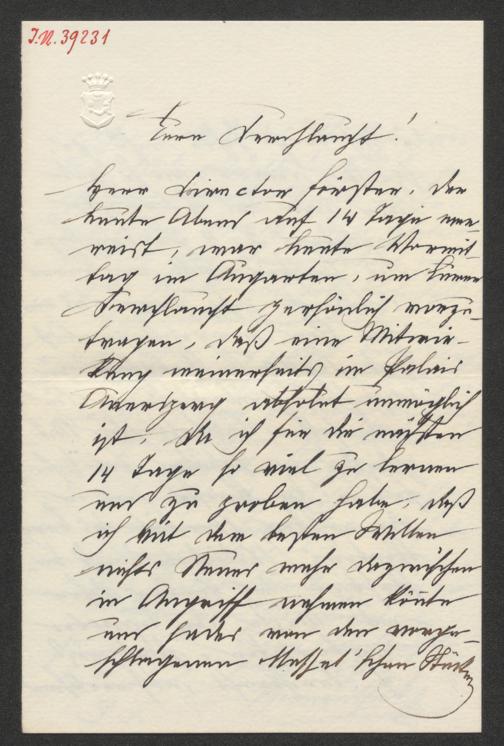 J.N. 39231
Eure Durchlaucht!
Herr Director Förster, der
heute Abend auf 14 Tage ver-
reist, war heute Vormit-
tag im Augarten, um Eurer
Durchlaucht persönlich vorzu-
tragen, daß eine Mitwir-
kung meinerseits im Palais
Auersperg absolut unmöglich
ist, da ich für die nächsten
14 Tage so viel zu lernen
und zu proben habe, daß
ich mit dem besten Willen
nichts Neues mehr dazwischen
in Angriff nehmen könnte
und jedes von den vorge-
schlagenen'schen Stücken